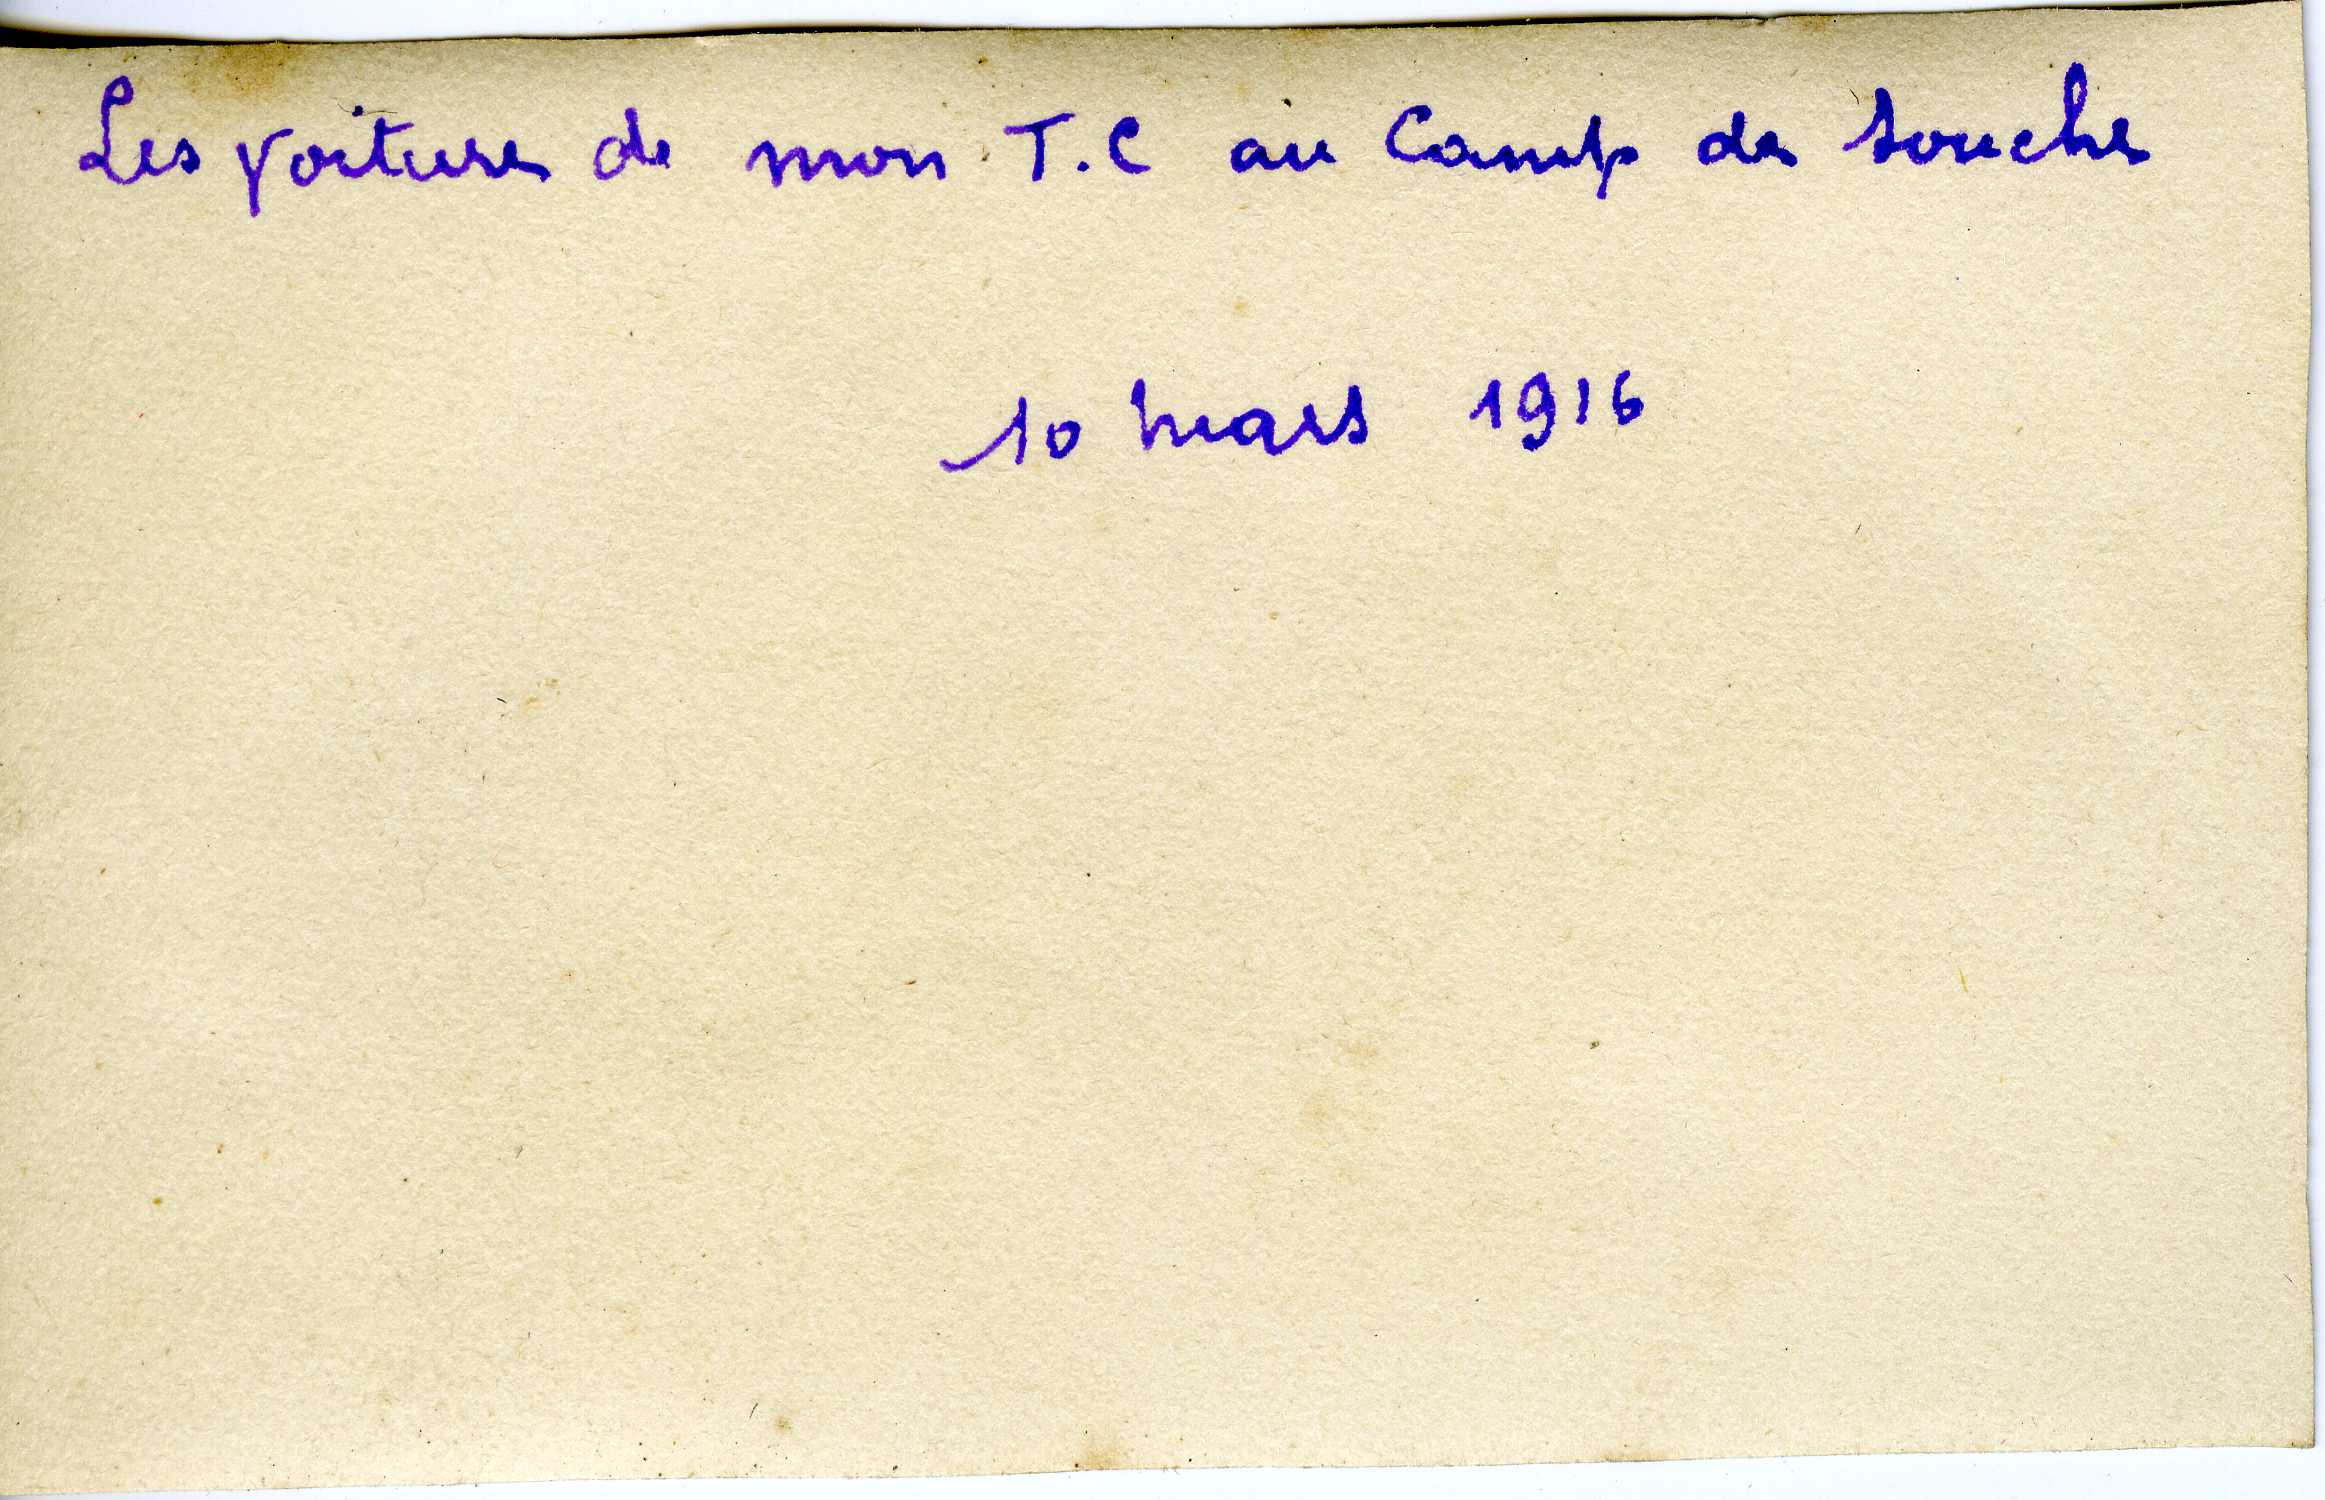 Les voitures de mon T.C au Camp de Souche
10 mars 1916